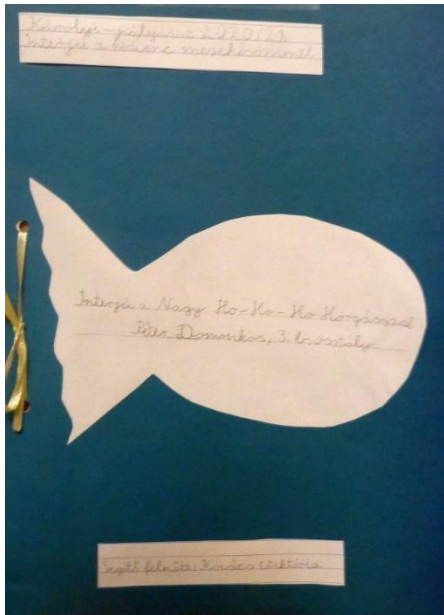 Karolyi-pályázat 2020/21
Interjú a kedvenc mesehősömmel
Interjú a Nagy Ho-Ho-Ho Horgásszal
Péter Domonkos, 3. b. osztály
Segítő felnőtt: Kovács Viktória